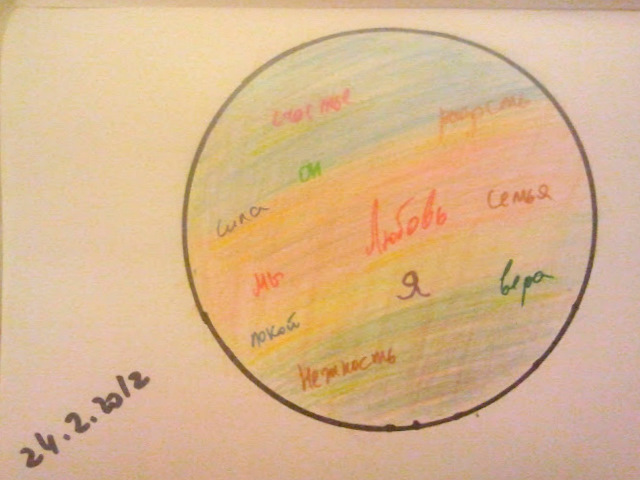 счастье
радость
он
сила
Любовь
семья
мы
Я
вера
покой
Нежность
24.2.2012